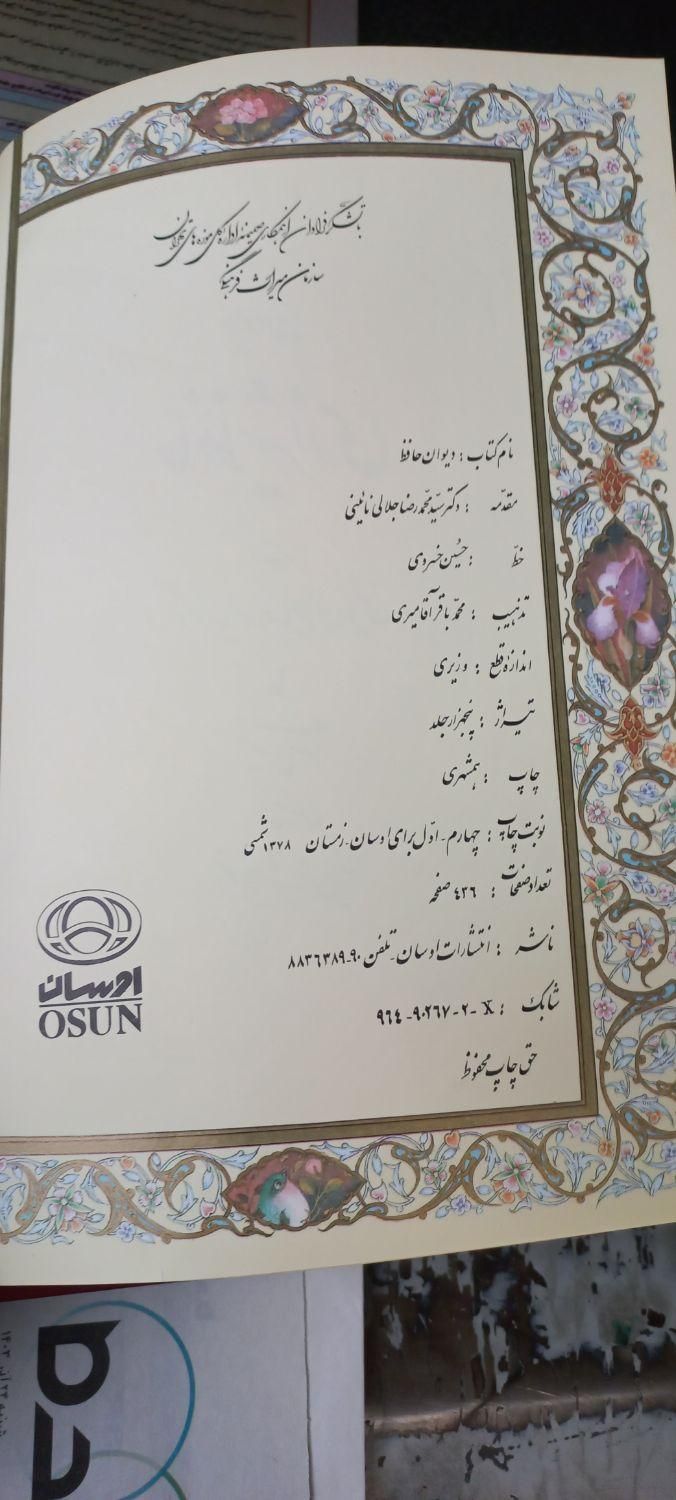 با تشکر فراوان از همکاری صمیمانه اداره کل موزه های تهران
سازمان میراث فرهنگی
نام کتاب : دیوان حافظ
مقدّمه : دکتر سیّد محمّدرضا جلالی نائینی
خطّ : حسین خسروی
تذهیب : محمّد باقر آقامیری
اندازهٔ قطع : وزیری
تیراژ : پنجهزار جلد
چاپ : همشهری
نوبت چاپ : چهارم - اوّل برای اوسان - زمستان ۱۳۷۸ شمسی
تعداد صفحات : ۴۳۶ صفحه
ناشر : انتشارات اوسان - تلفن ۹۰-۸۸۳۶۳۸۹
شابک : X -۲-۹۰۲۶۷-۹۶۴
حق چاپ محفوظ
اوسان
OSUN